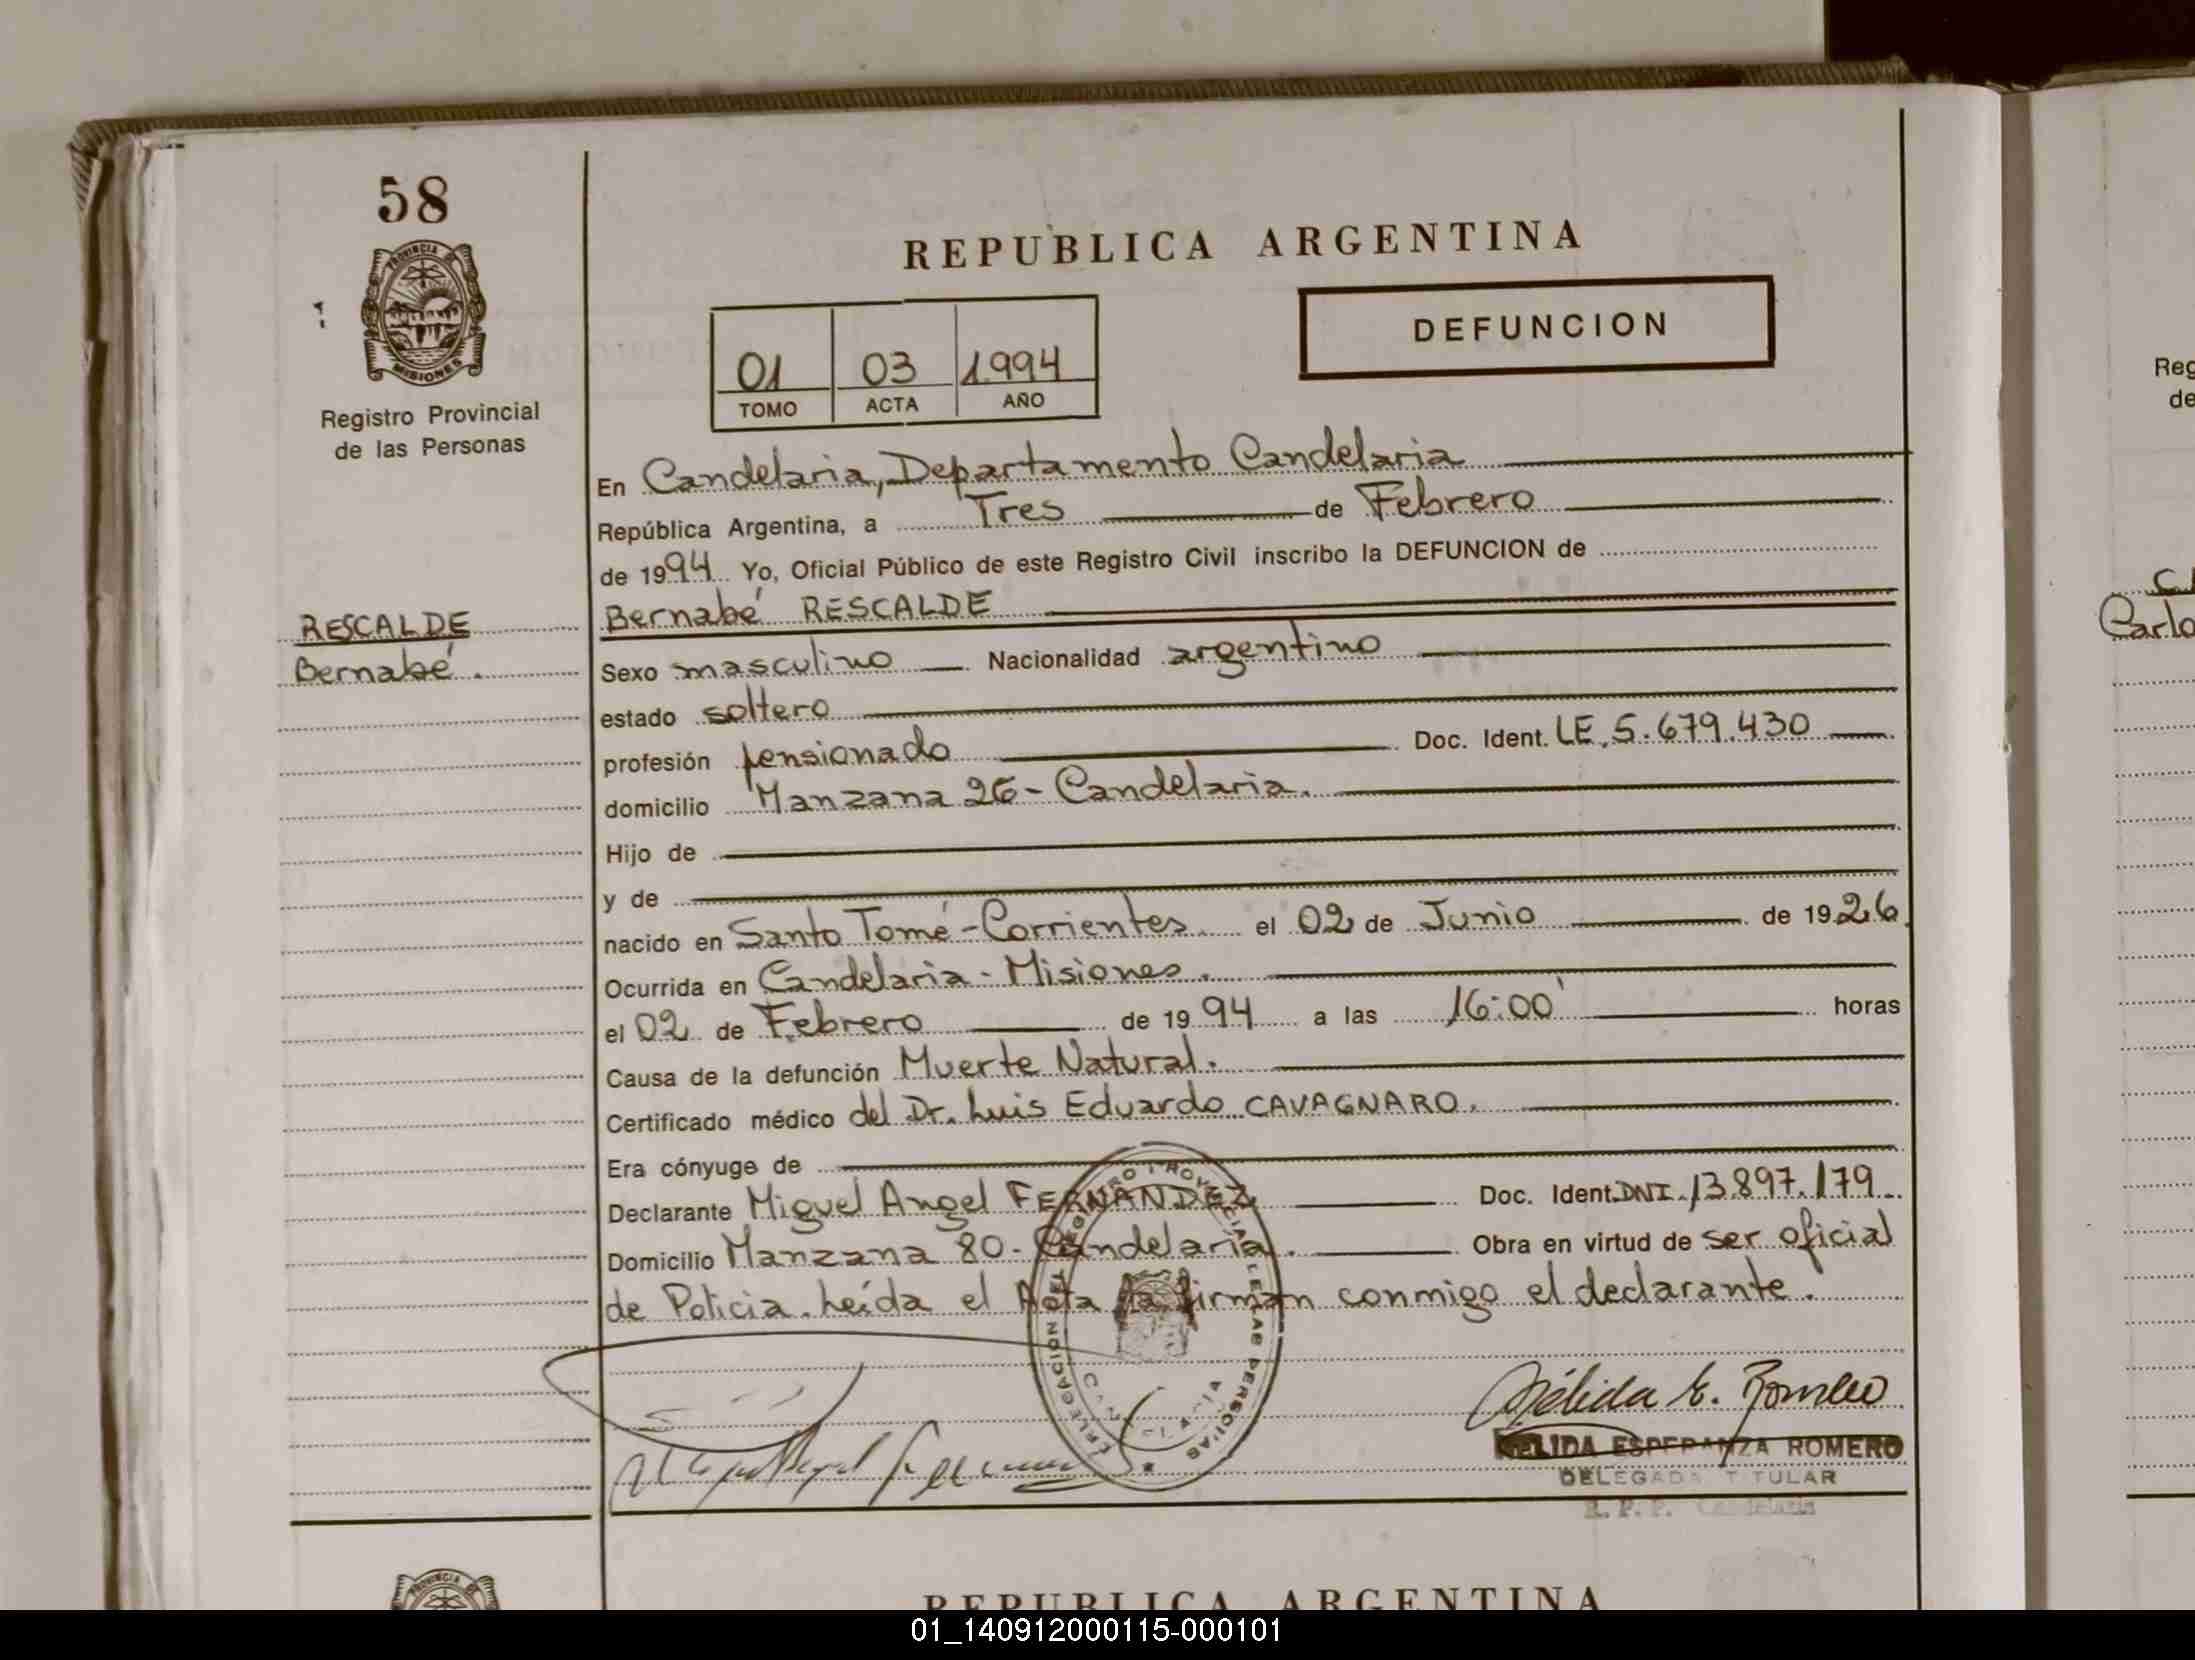 58
PROVINCIA DE
MISIONES
Registro Provincial
de las Personas
REPUBLICA ARGENTINA
DEFUNCION
01 03 1994
TOMO ACTA AÑO
En Candelaria, Departamento Candelaria
República Argentina, a Tres de Febrero
de 1994 Yo, Oficial Público de este Registro Civil inscribo la DEFUNCION de
RESCALDE
Bernabé.
Bernabé RESCALDE
Sexo masculino Nacionalidad argentino
estado soltero
profesión pensionado Doc. Ident. LE. 5.679.430
domicilio Manzana 26 - Candelaria.
Hijo de
y de
nacido en Santo Tomé - Corrientes. el 02 de Junio de 1926.
Ocurrida en Candelaria - Misiones.
el 02 de Febrero de 1994 a las 16:00' horas
Causa de la defunción Muerte Natural.
Certificado médico del Dr. Luis Eduardo CAVAGNARO.
Era cónyuge de
Declarante Miguel Angel FERNANDEZ Doc. Ident. DNI. 13.897.179
Domicilio Manzana 80 - Candelaria. Obra en virtud de ser oficial
de Policia. Leída el Acta la firman conmigo el declarante.
Nélida E. Romero
NELIDA ESPERANZA ROMERO
DELEGADA TITULAR
R. P. P. Candelaria
PROVINCIA DE
REPUBLICA ARGENTINA
Reg
de
Carlo
01_140912000115-000101